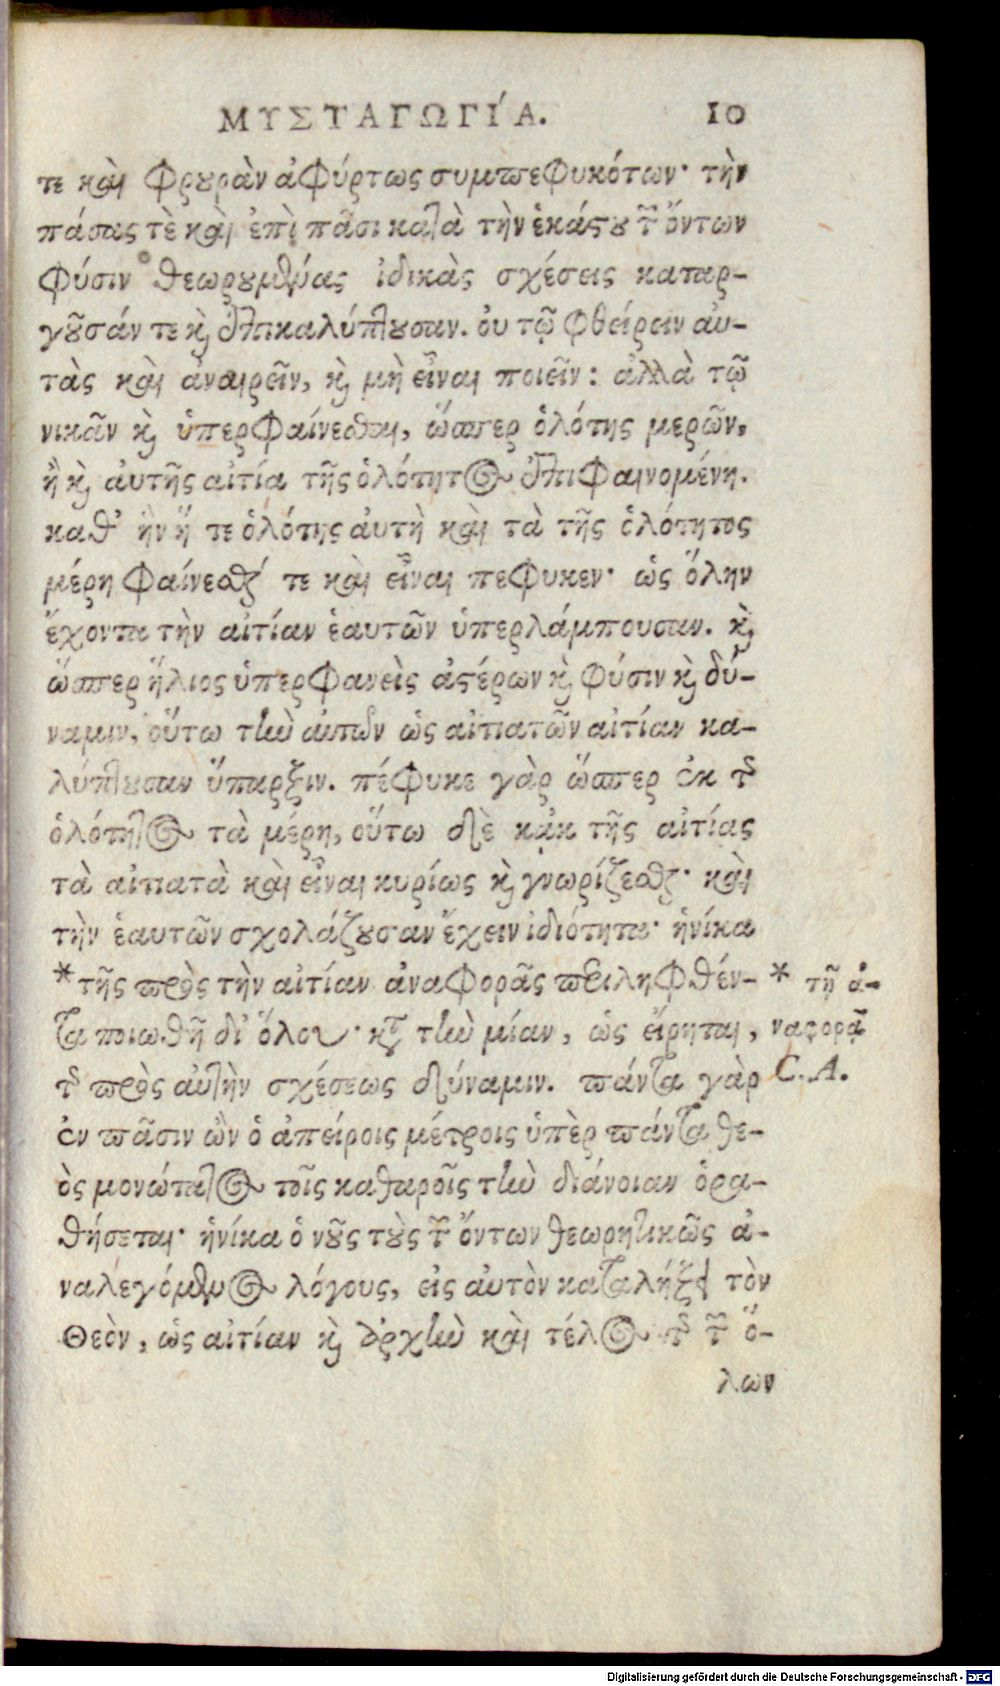 ΜΥΣΤΑΓΩΓΊΑ. 10
τε καὶ φρουρὰν ἀφύρτως συμπεφυκότων· τὴν
πάσας τὲ καὶ ἐπὶ πᾶσι κατὰ τὴν ἑκάστου τῶν ὄντων
φύσιν θεωρουμένας ἰδικὰς σχέσεις καταρ-
γοῦσάν τε καὶ ἐπικαλύπτουσαν. οὐ τῷ φθείρειν αὐ-
τὰς καὶ ἀναιρεῖν, καὶ μὴ εἶναι ποιεῖν: ἀλλὰ τῷ
νικᾶν καὶ ὑπερφαίνεσθαι, ὥσπερ ὁλότης μερῶν,
ἢ καὶ αὐτῆς αἰτία τῆς ὁλότητος ἐπιφαινομένη.
καθ' ἣν ἥ τε ὁλότης αὐτὴ καὶ τὰ τῆς ὁλότητος
μέρη φαίνεσθαί τε καὶ εἶναι πεφυκεν· ὡς ὅλην
ἔχοντα τὴν αἰτίαν ἑαυτῶν ὑπερλάμπουσαν. καὶ
ὥσπερ ἥλιος ὑπερφανεὶς ἀστέρων καὶ φύσιν καὶ δύ-
ναμιν, οὕτω τὴν αὐτῶν ὡς αἰτιατῶν αἰτίαν κα-
λύπτουσαν ὕπαρξιν. πέφυκε γὰρ ὥσπερ ἐκ τῆς
ὁλότητος τὰ μέρη, οὕτω δὲ κἀκ τῆς αἰτίας
τὰ αἰτιατὰ καὶ εἶναι κυρίως καὶ γνωρίζεσθαι· καὶ
τὴν ἑαυτῶν σχολάζουσαν ἔχειν ἰδιότητα· ἡνίκα
*τῆς πρὸς τὴν αἰτίαν ἀναφορᾶς περιληφθέν-
τα ποιωθῆ δι' ὅλου· κατὰ τὴν μίαν, ὡς εἴρηται,
τῆς πρὸς αὐτὴν σχέσεως δύναμιν. πάντα γὰρ
ἐν πᾶσιν ὢν ὁ ἀπείροις μέτροις ὑπὲρ πάντα θε-
ὸς μονώτατος τοῖς καθαροῖς τὴν διάνοιαν ὁρα-
θήσεται· ἡνίκα ὁ νοῦς τοὺς τῶν ὄντων θεωρητικῶς ἀ-
ναλεγόμενος λόγους, εἰς αὐτὸν καταλήξει τὸν
Θεὸν, ὡς αἰτίαν καὶ ἀρχὴν καὶ τέλος τῆς τῶν ὅ-
λων
* τῇ ἀ-
ναφορᾷ
C. A.
Digitalisierung gefördert durch die Deutsche Forschungsgemeinschaft - DFG